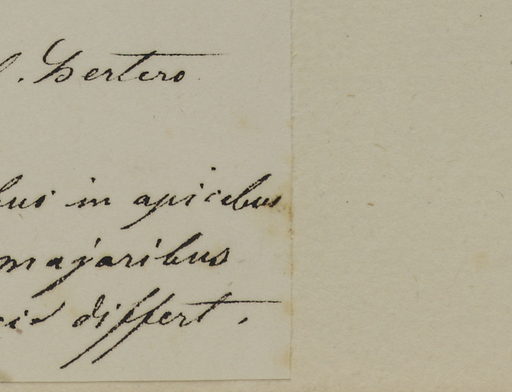 . Bertero
bus in apicibus
majoribus
differt.